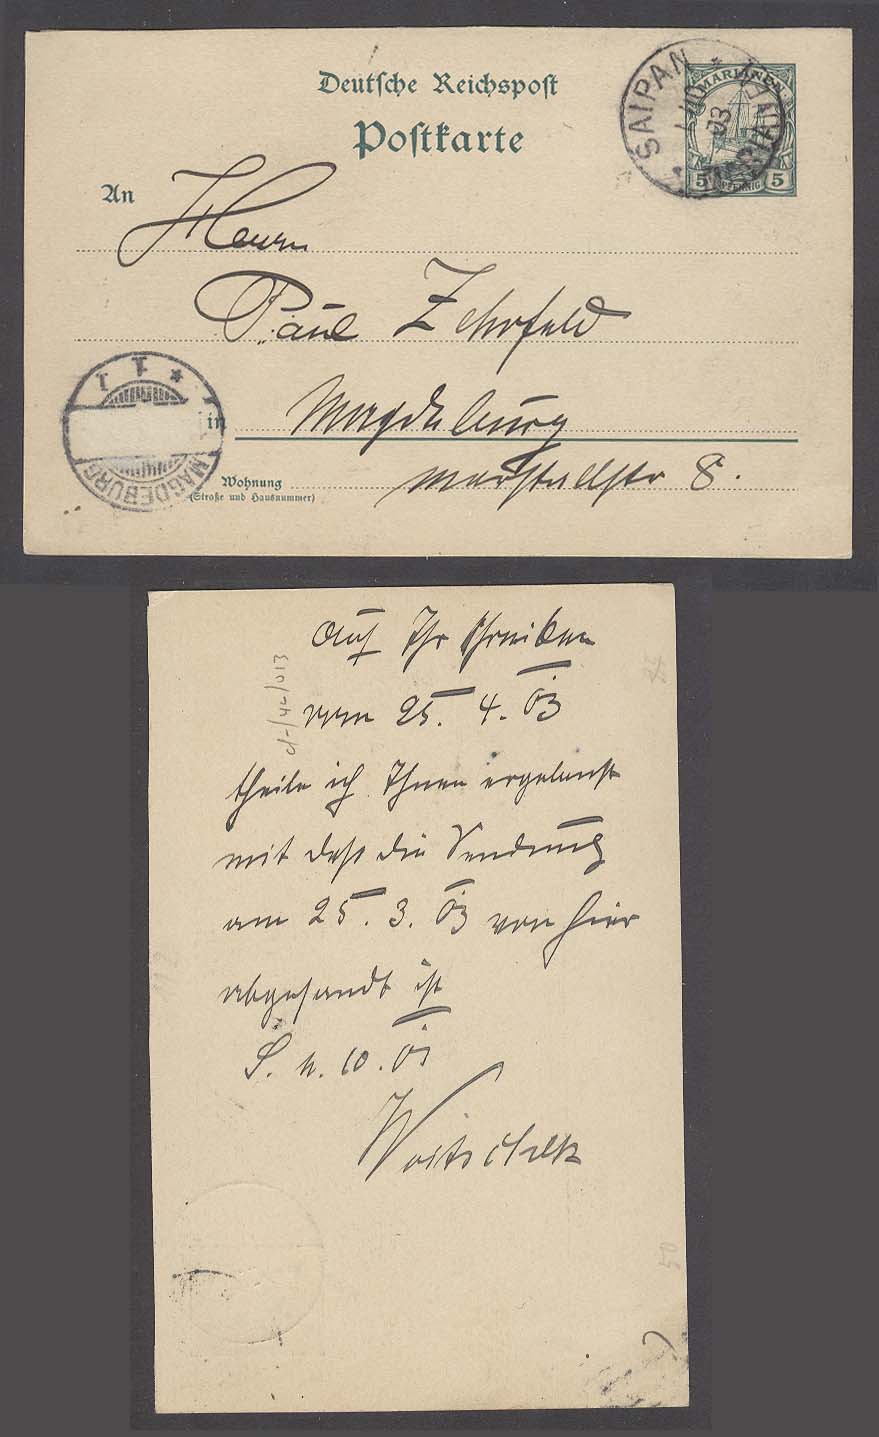 Deutsche Reichspost
Postkarte
SAIPAN
1/10
03
MARIANEN
MARIANEN
5 PFENNIG 5
An
Herrn
Paul Zehrfeld
in Magdeburg
Wohnung Marstallstr 8.
(Straße und Hausnummer)
MAGDEBURG
* 1 1
Auf Ihr Schreiben
vom 25. 4. 03
theile ich Ihnen ergebenst
mit daß die Sendung
am 25. 3. 03 von hier
abgesandt ist
S. 10. 03
50